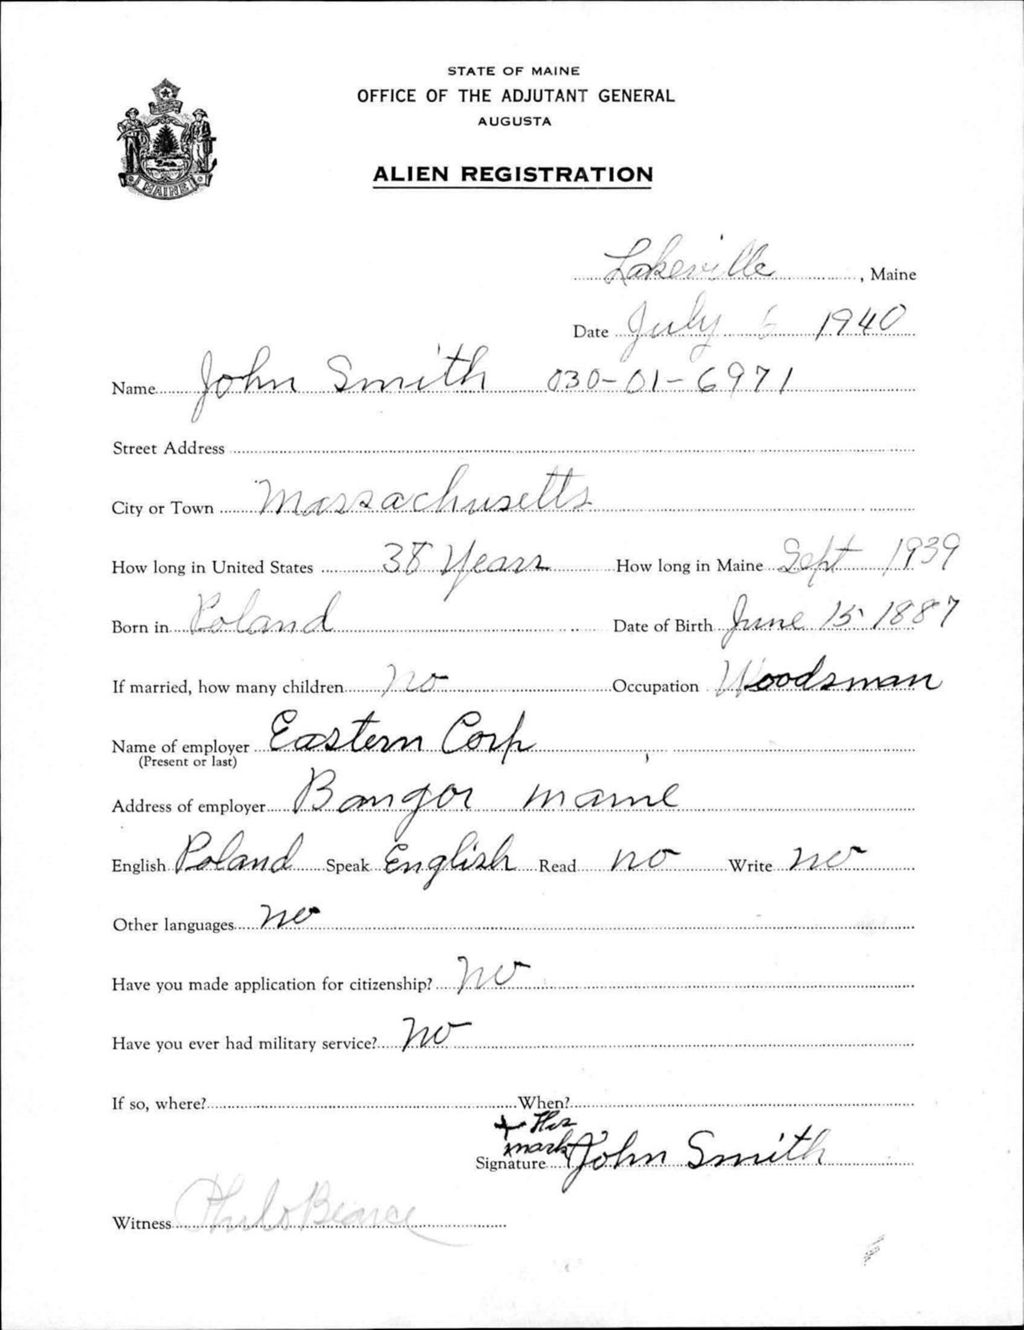 STATE OF MAINE
OFFICE OF THE ADJUTANT GENERAL
AUGUSTA
ALIEN REGISTRATION
MAINE
Lakeville, Maine
Date July 6 1940
Name John Smith 030-01-6971
Street Address
City or Town Massachusetts
How long in United States 38 Years How long in Maine Sept 1939
Born in Poland Date of Birth June 15 1887
If married, how many children no Occupation Woodsman
Name of employer Eastern Corp
(Present or last)
Address of employer Bangor Maine
English Poland Speak English Read no Write no
Other languages no
Have you made application for citizenship? no
Have you ever had military service? no
If so, where? When?
+ His
mark
Signature John Smith
Witness Philo Bearce